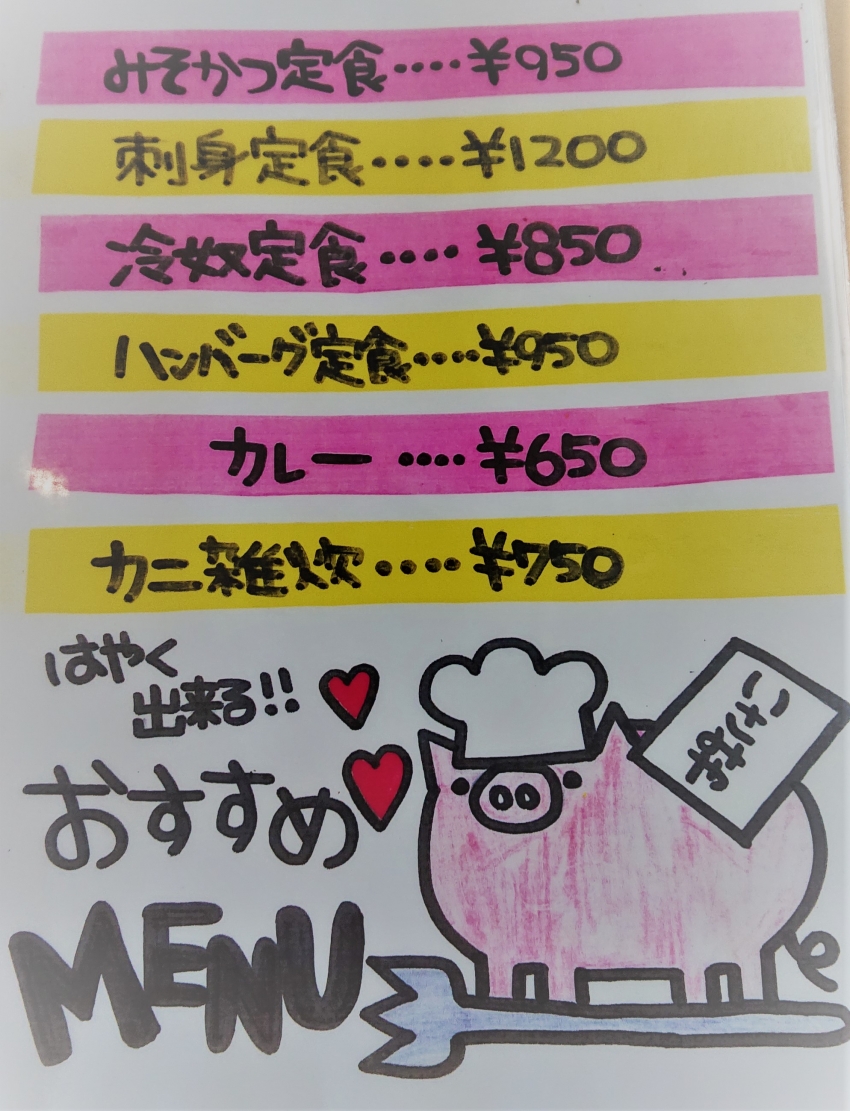 みそかつ定食....¥950
刺身定食....¥1200
冷奴定食....¥850
ハンバーグ定食....¥950
カレー....¥650
カニ雑炊....¥750
はやく
出来る!!
おすすめ
MENU